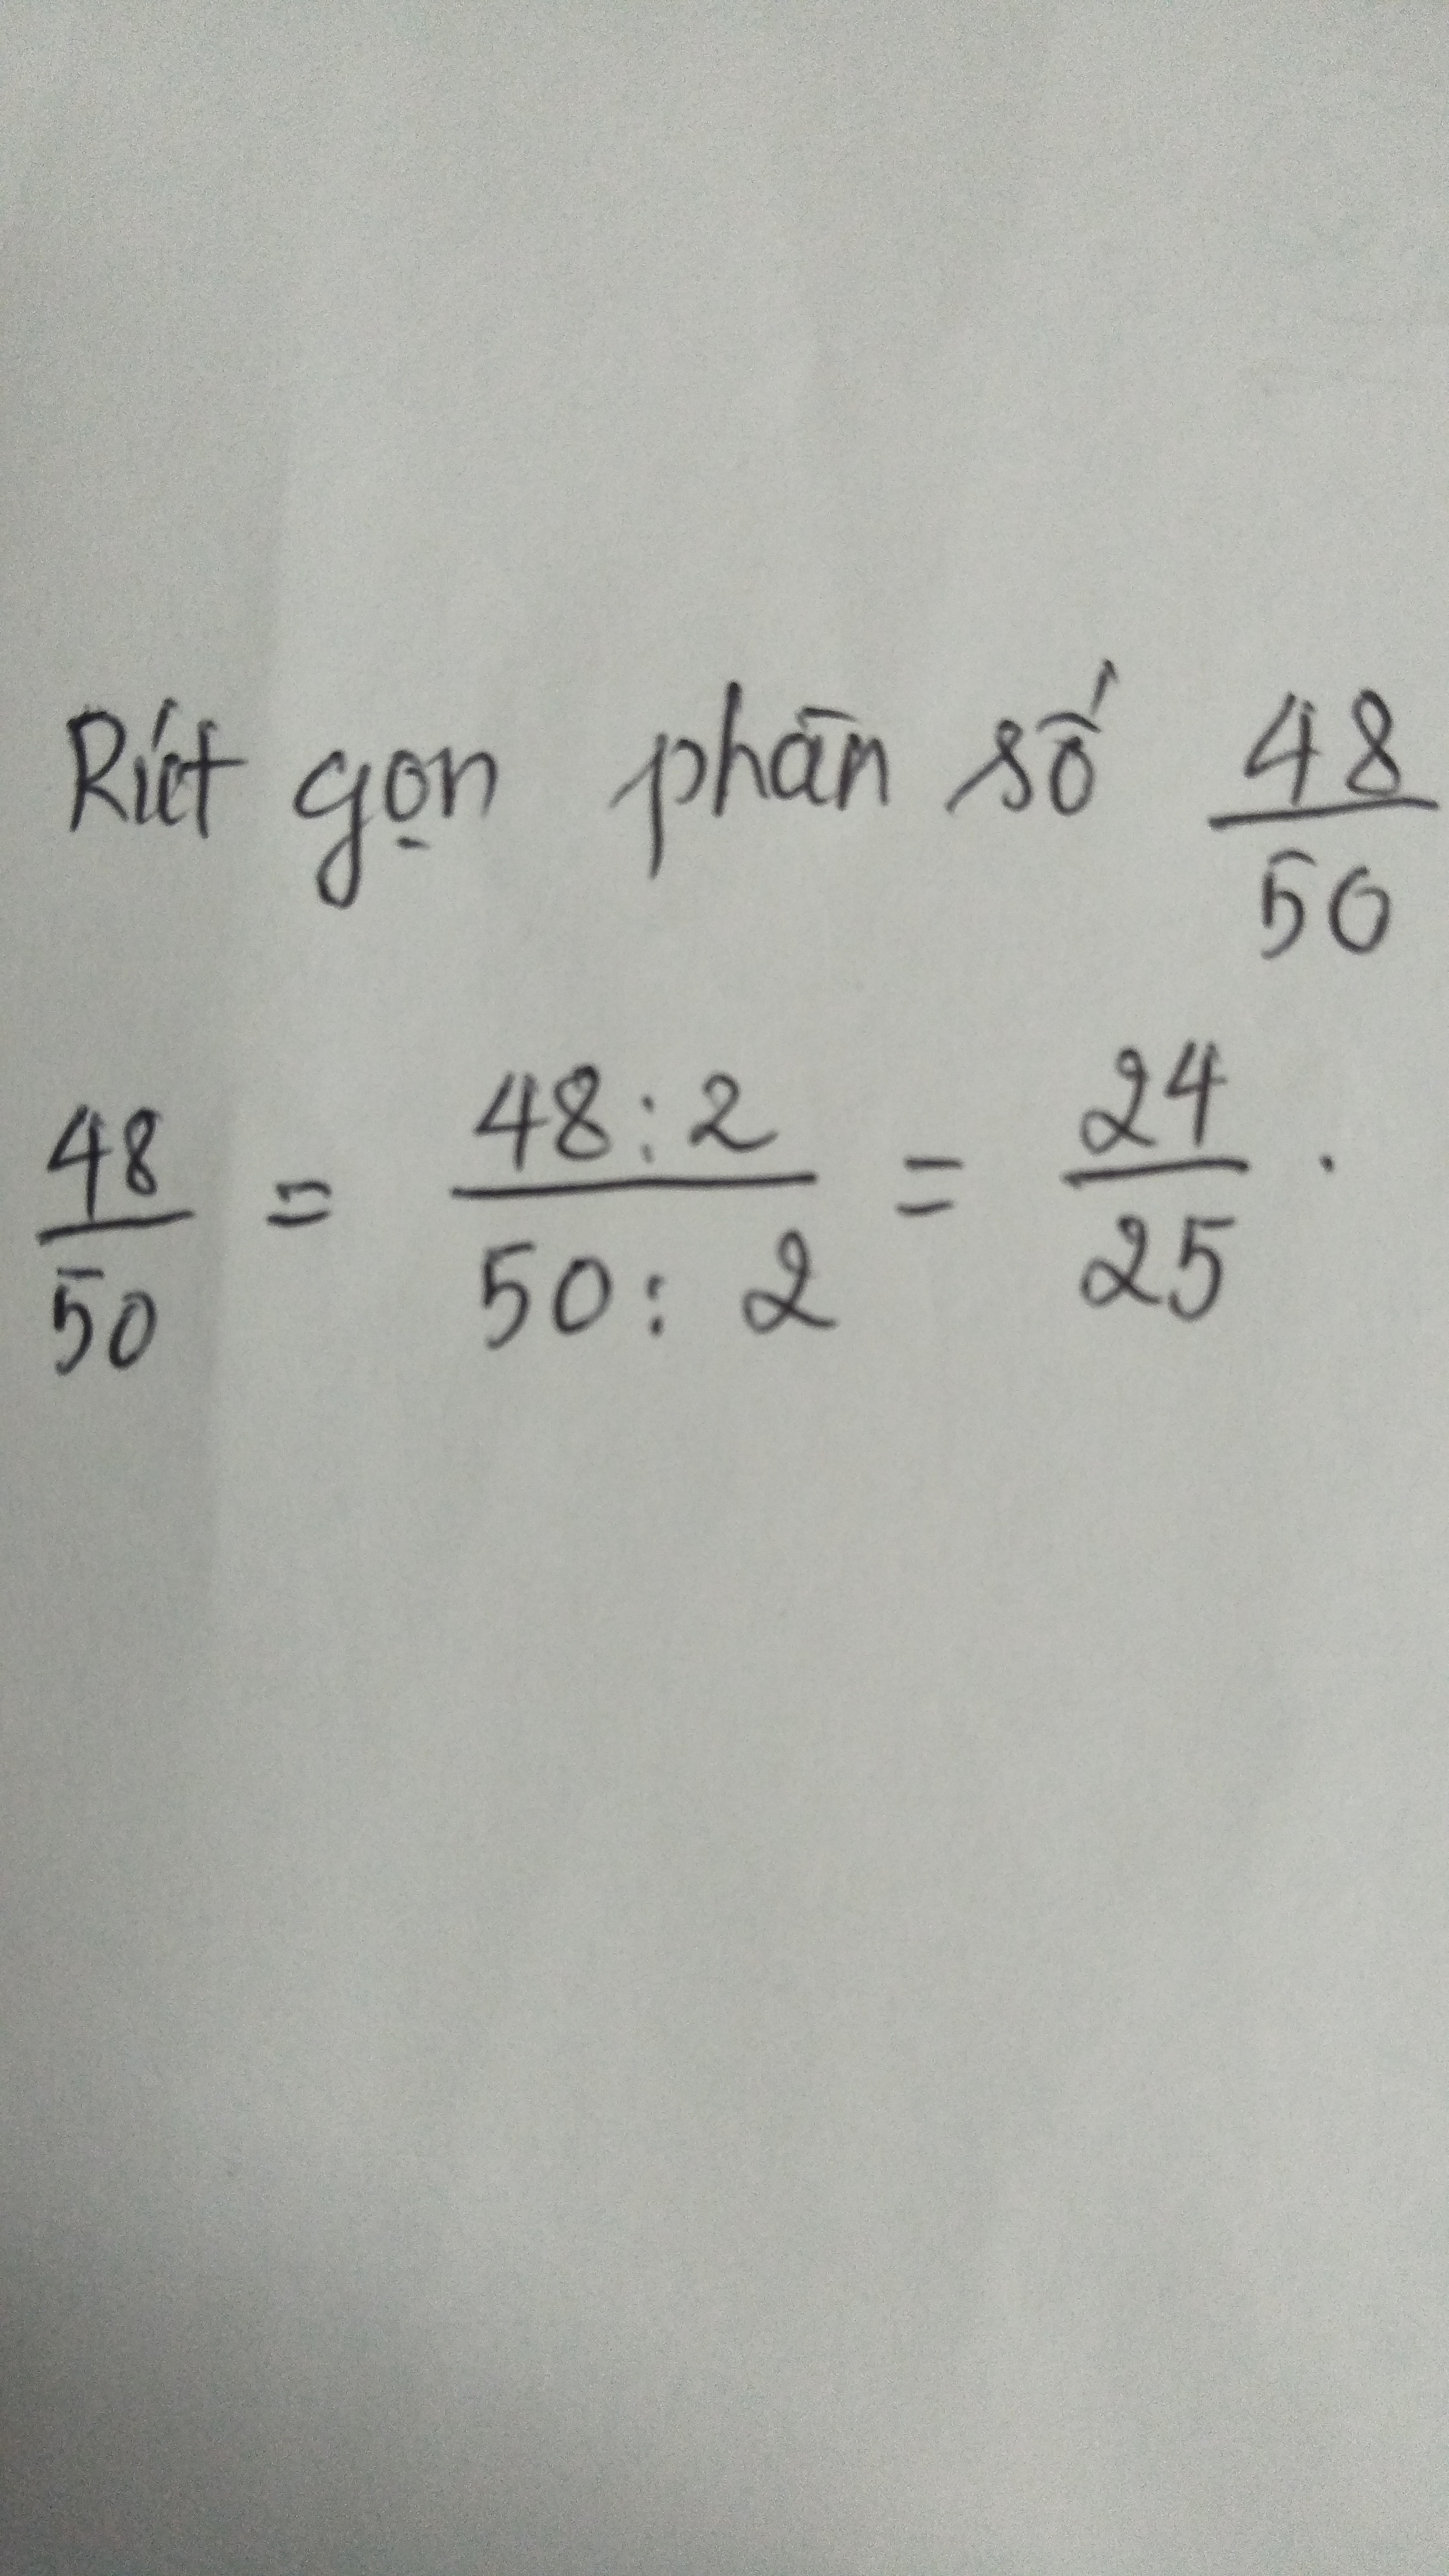 Rút gọn phân số 48/50
48/50 = 48:2/50:2 = 24/25.